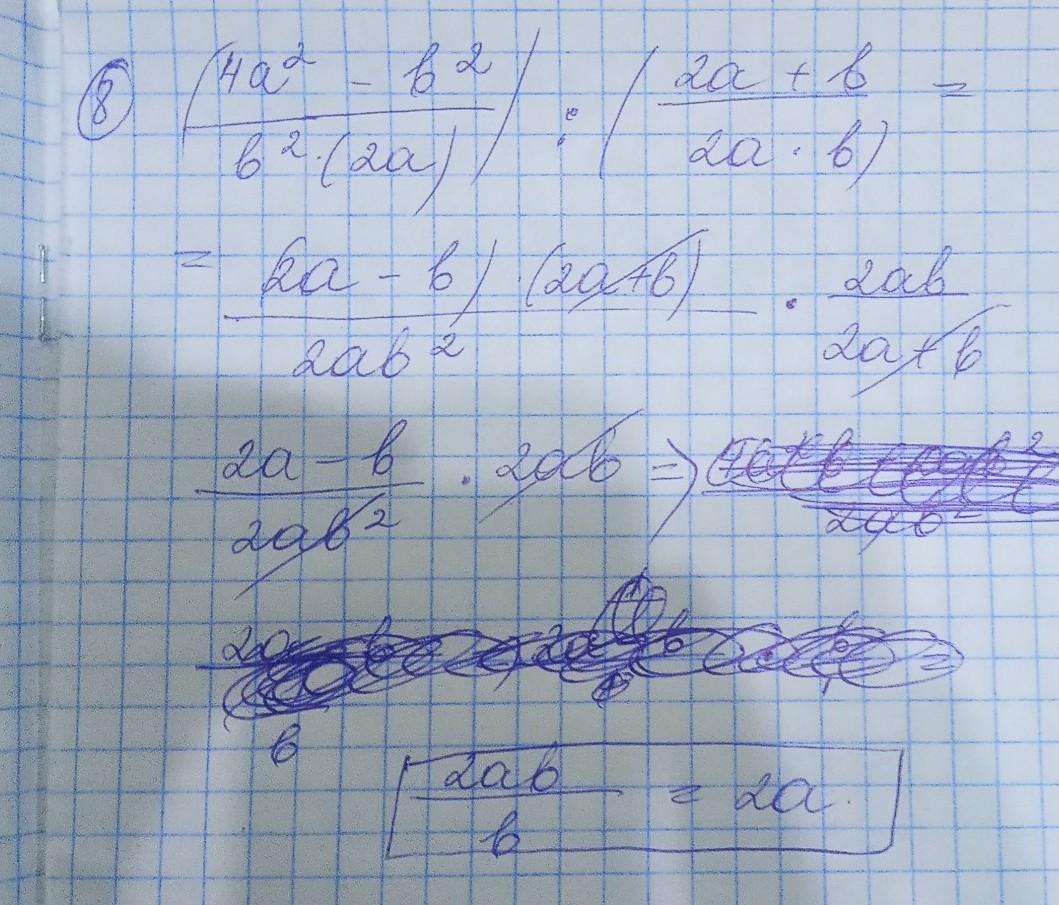 8 (4a² - b² / b² · (2a)) : (2a + b / 2a · b) =
= (2a - b) · (2a+b) / 2ab² · 2ab / 2a+b
2a - b / 2ab² · 2ab =>
b
2ab / b = 2a.